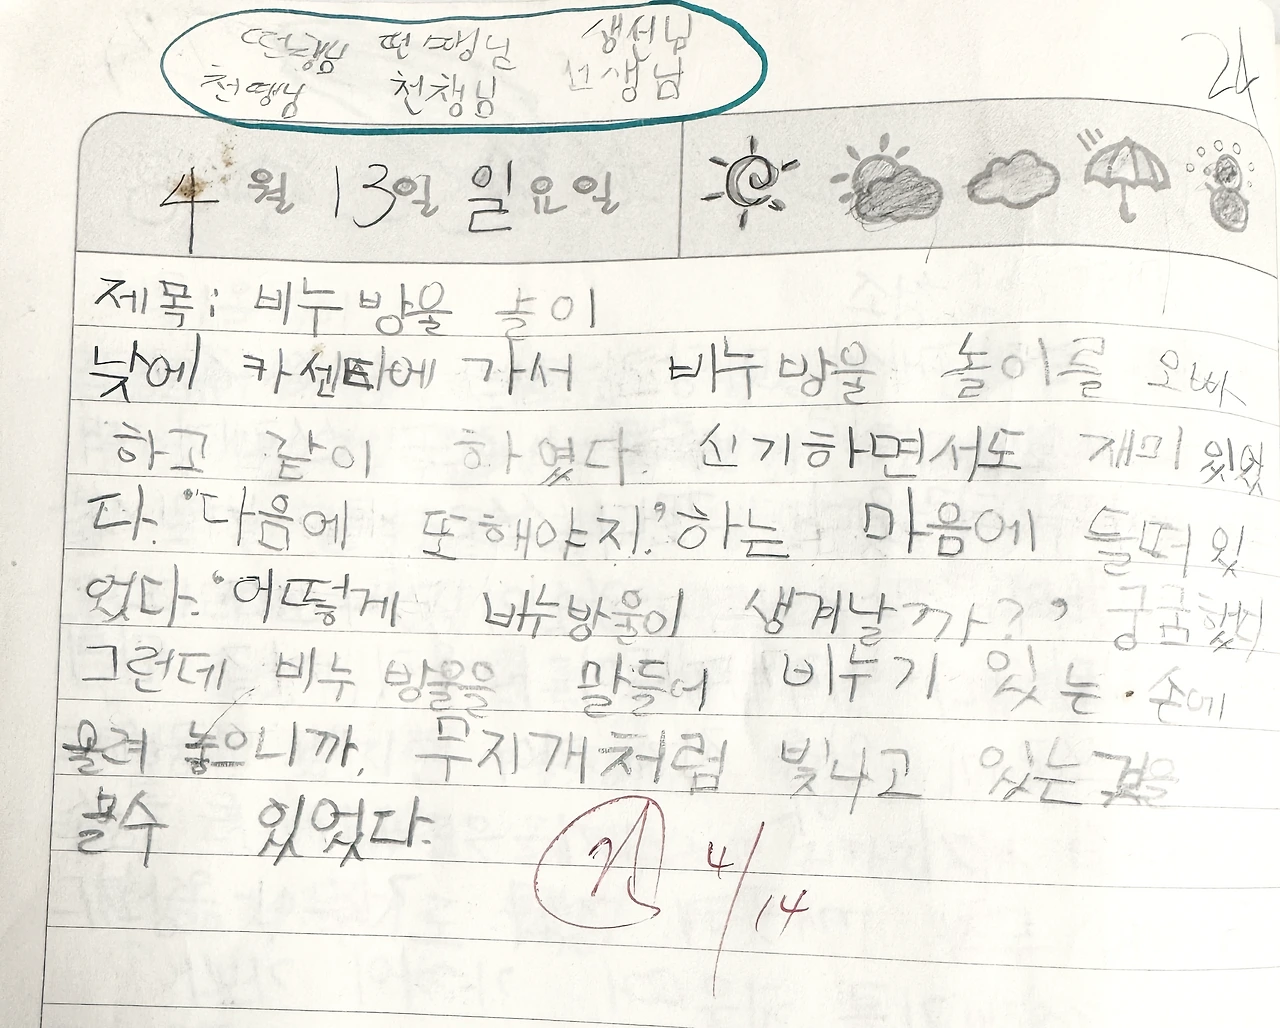 떤땡님 떤땡님 생선님
천땡님 천챙님 선생님
24
4월 13일 일요일
제목: 비누방울 놀이
낮에 카센터에 가서 비누방울 놀이를 오빠
하고 같이 하였다. 신기하면서도 재미있었
다. "다음에 또해야지."하는 마음에 들떠있
었다. '어떻게 비누방울이 생겨날까?' 궁굼했다.
그런데 비누방울을 말들어 비누기 있는 손에
올려 놓으니까, 무지개처럼 빛나고 있는 것을
볼수 있었다.
검 4/14